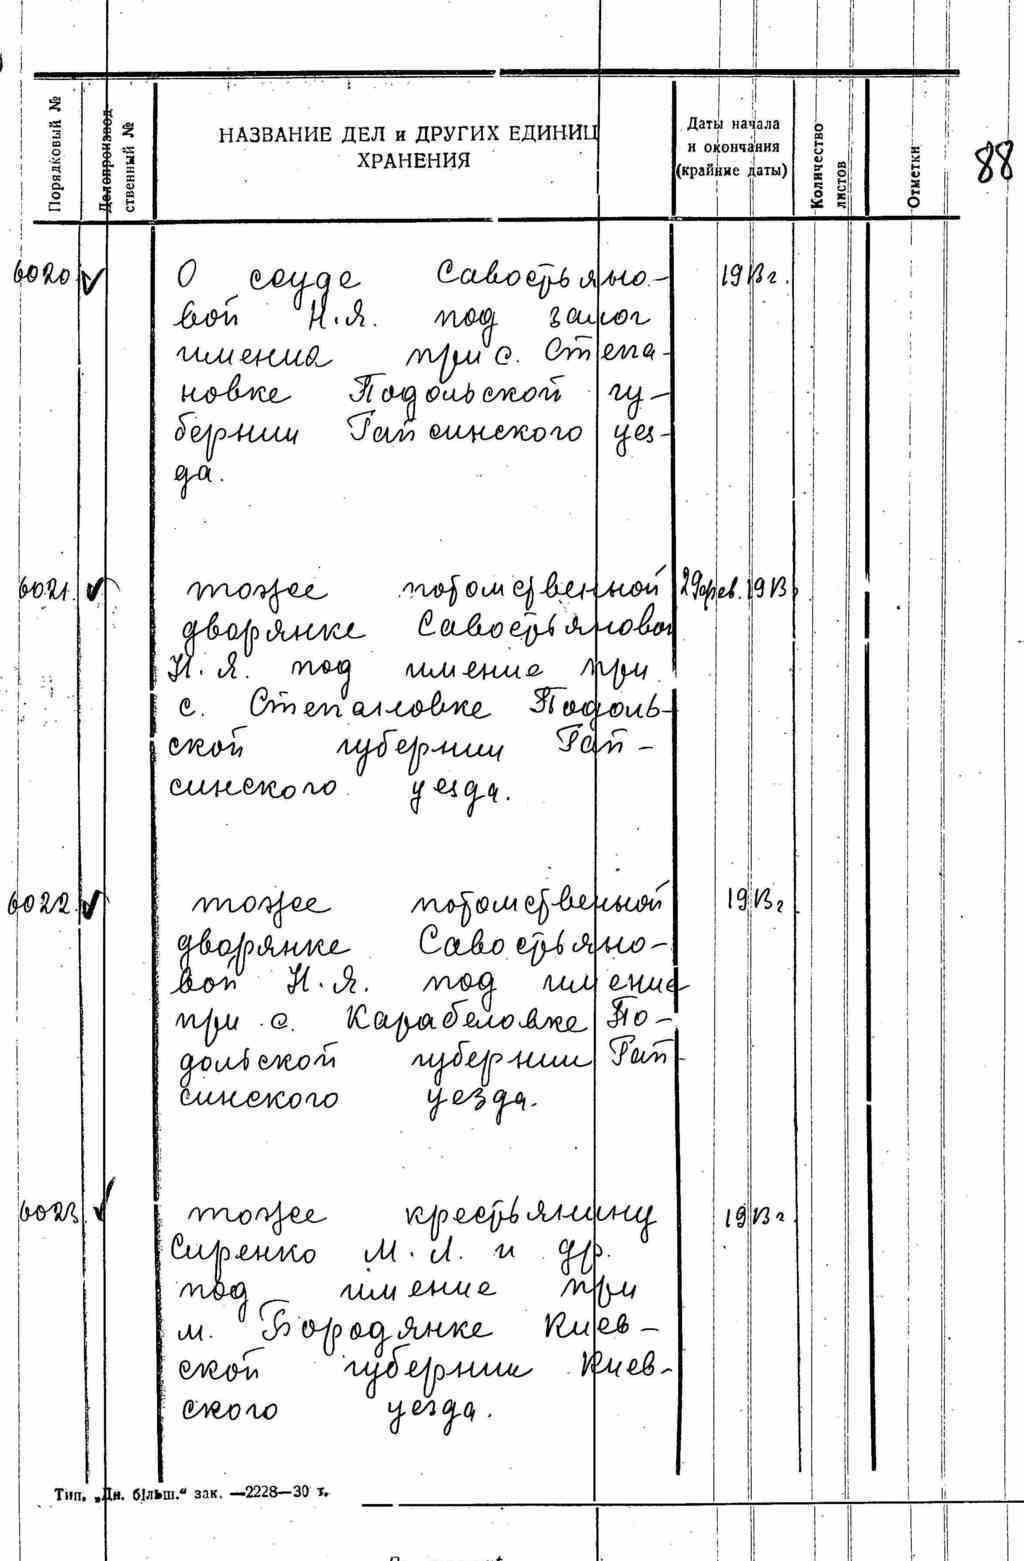 Порядковый №
Делопроизвод-
ственный №
НАЗВАНИЕ ДЕЛ и ДРУГИХ ЕДИНИЦ
ХРАНЕНИЯ
Даты начала
и окончания
(крайние даты)
Количество
листов
Отметки
88
6020 О ссуде Савостьяно- 1913 г.
вой Н.Я. под залог
имения при с. Степа-
новке Подольской гу-
бернии Гайсинского уез-
да.
6021. тоже потомственной 29 фев. 1913
дворянке Савостьяновой
Н.Я. под имение при
с. Степановке Подоль-
ской губернии Гай-
синского уезда.
6022. тоже потомственной 1913 г
дворянке Савостьяно-
вой Н.Я. под имение
при с. Карабеловке По-
дольской губернии Гай-
синского уезда.
6023. тоже крестьянину 1913 г
Сиренко М.Л. и др.
под имение при
м. Бородянке Киев-
ской губернии Киев-
ского уезда.
Тип. „Дн. більш.“ зак. —2228—30 т.